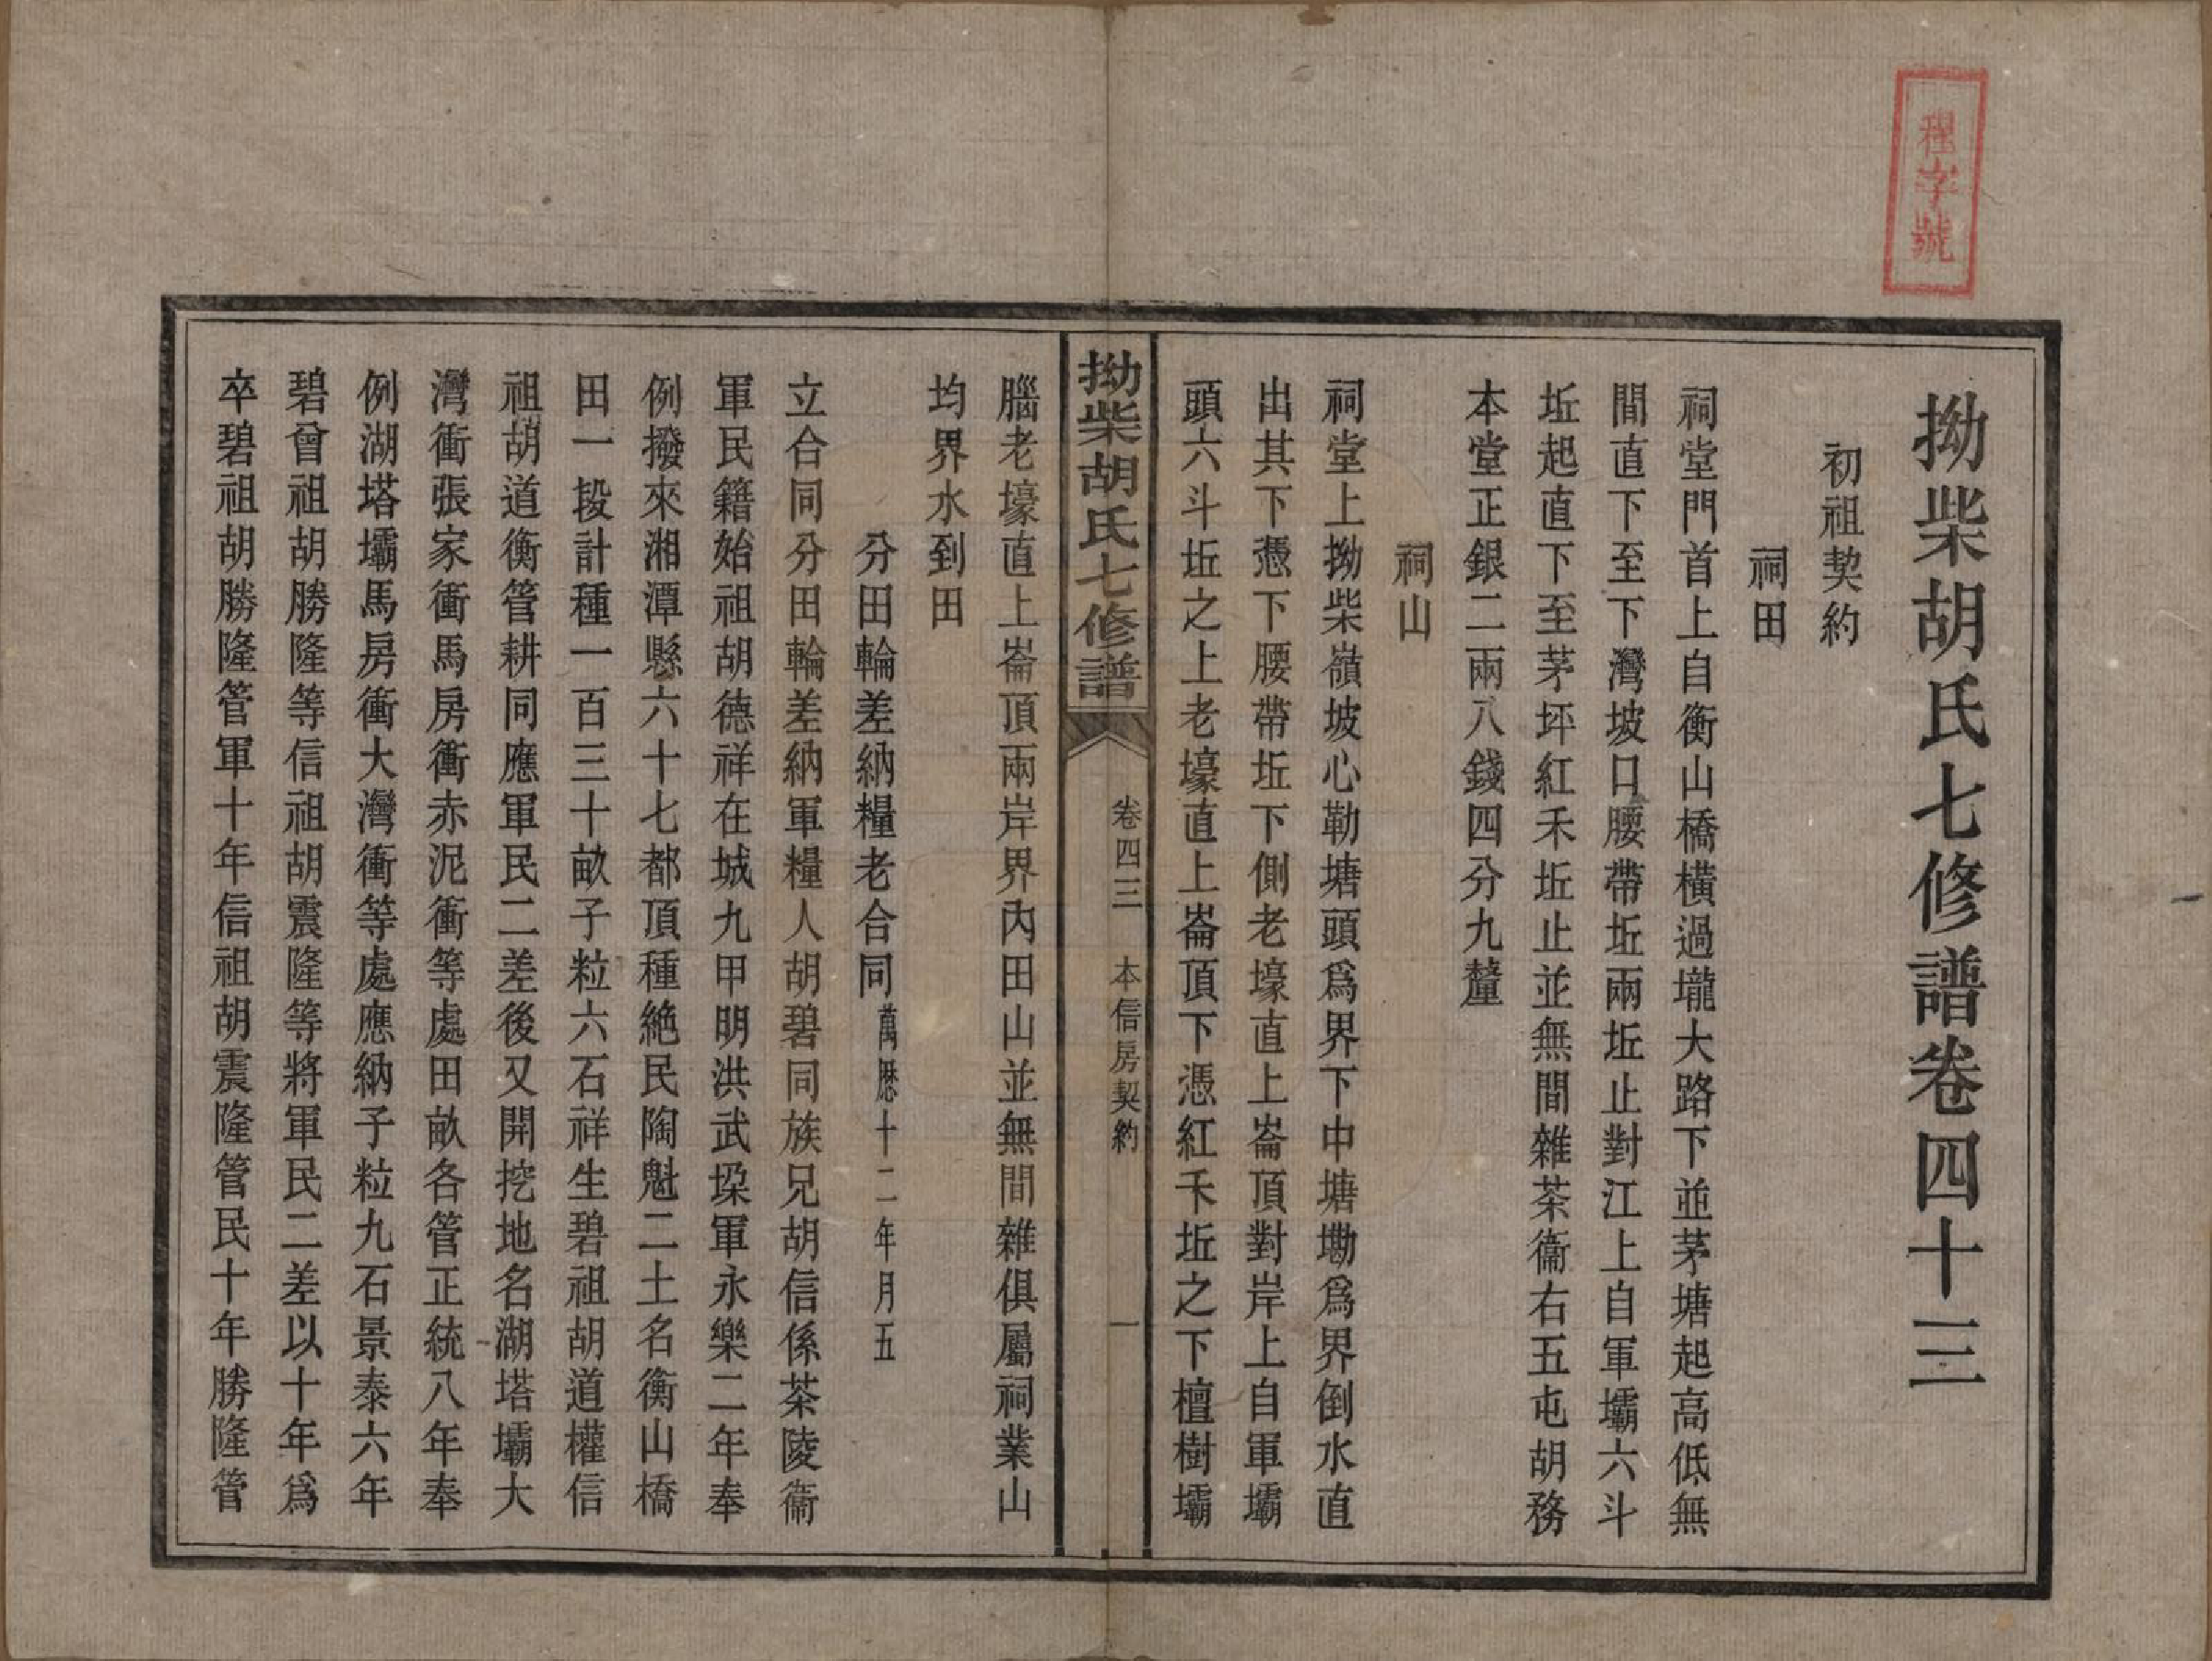 程字號
拗柴胡氏七修譜卷四十三
初祖契約
祠田
祠堂門首上自衡山橋橫過壠大路下並茅塘起高低無
間直下至下灣坡口腰帶坵兩坵止對江上自軍壩六斗
坵起直下至茅坪紅禾坵止並無間雜茶衞右五屯胡務
本堂正銀二兩八錢四分九釐
祠山
祠堂上拗柴嶺坡心勒塘頭爲界下中塘墈爲界倒水直
出其下憑下腰帶坵下側老壕直上崙頂對岸上自軍壩
頭六斗坵之上老壕直上崙頂下憑紅禾坵之下檀樹壩
拗柴胡氏七修譜
卷四三 本信房契約 一
腦老壕直上崙頂兩岸界內田山並無間雜俱屬祠業山
均界水到田
分田輪差納糧老合同萬歷十二年月五
立合同分田輪差納軍糧人胡碧同族兄胡信係茶陵衞
軍民籍始祖胡德祥在城九甲明洪武垜軍永樂二年奉
例撥來湘潭縣六十七都頂種絶民陶魁二土名衡山橋
田一段計種一百三十畝子粒六石祥生碧祖胡道權信
祖胡道衡管耕同應軍民二差後又開挖地名湖塔壩大
灣衝張家衝馬房衝赤泥衝等處田畝各管正統八年奉
例湖塔壩馬房衝大灣衝等處應納子粒九石景泰六年
碧曾祖胡勝隆等信祖胡震隆等將軍民二差以十年爲
卒碧祖胡勝隆管軍十年信祖胡震隆管民十年勝隆管